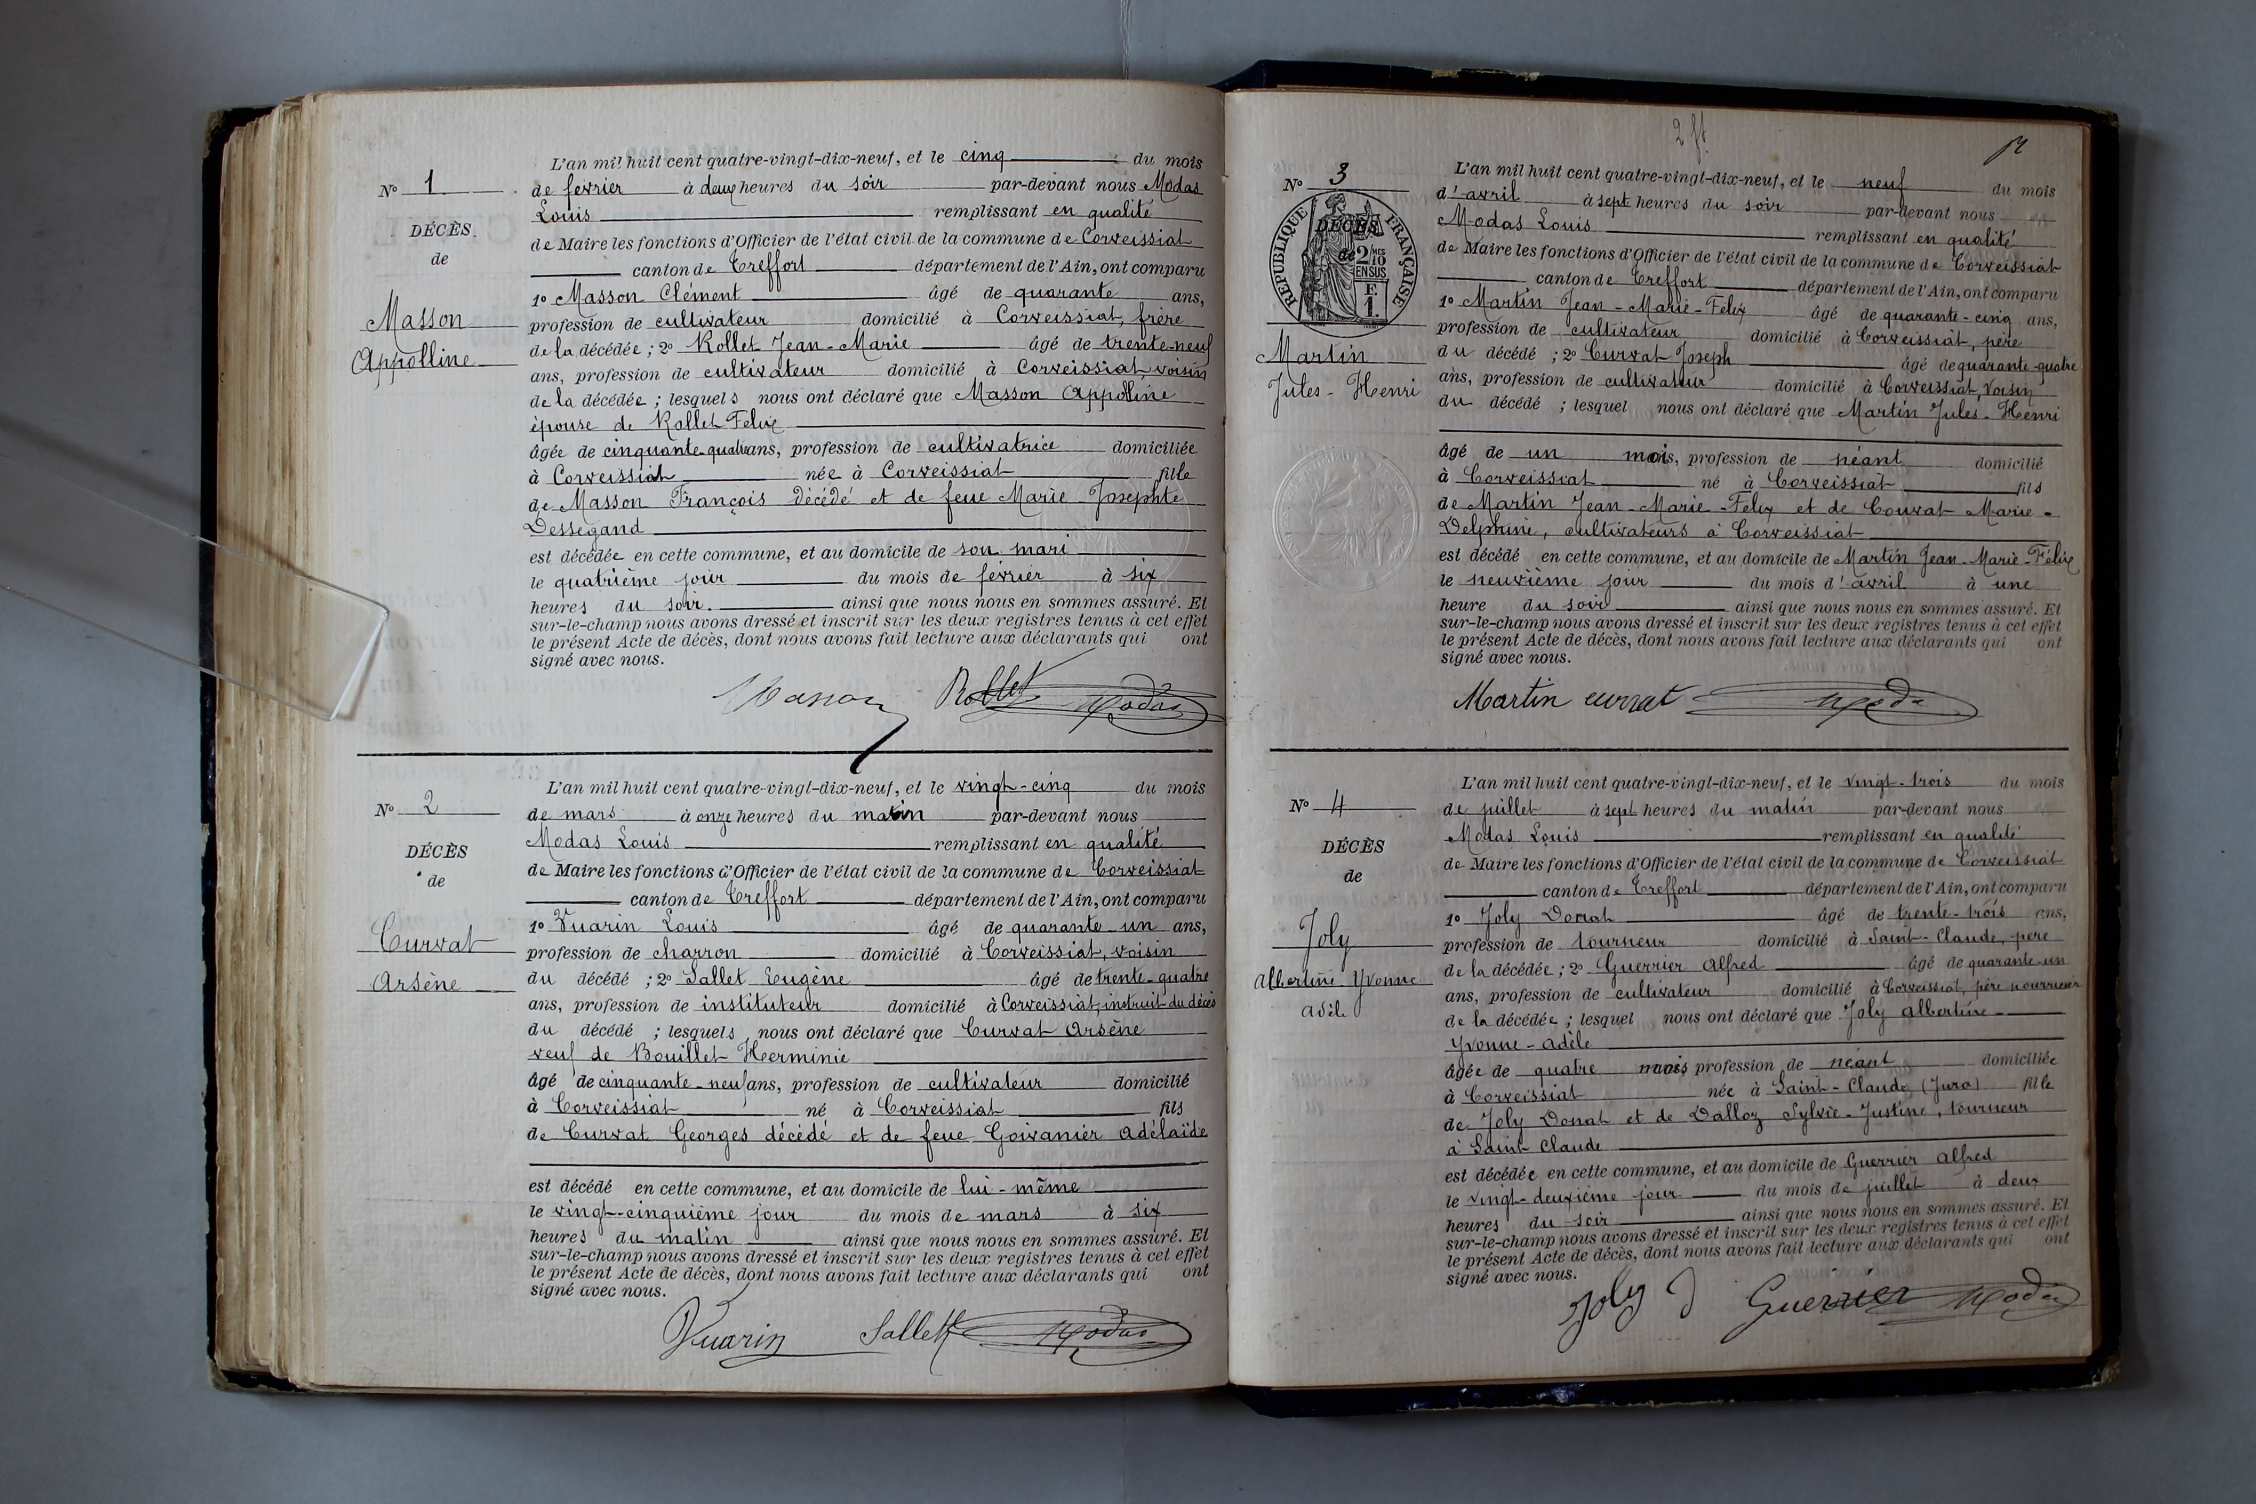 N° 1
DÉCÈS
de
Masson
Appolline
L'an mil huit cent quatre-vingt-dix-neuf, et le cinq du mois
de février à deux heures du soir par-devant nous Modas
Louis remplissant en qualité
de Maire les fonctions d'Officier de l'état civil de la commune de Corveissiat
canton de Treffort département de l'Ain, ont comparu
1° Masson Clément âgé de quarante ans,
profession de cultivateur domicilié à Corveissiat, frère
de la décédée ; 2° Rollet Jean-Marie âgé de trente-neuf
ans, profession de cultivateur domicilié à Corveissiat, voisin
de la décédée ; lesquels nous ont déclaré que Masson Appolline
épouse de Rollet Felix
âgée de cinquante-quatre ans, profession de cultivatrice domiciliée
à Corveissiat née à Corveissiat fille
de Masson François décédé et de feue Marie Josephte
Dessegand
est décédée en cette commune, et au domicile de son mari
le quatrième jour du mois de février à six
heures du soir. ainsi que nous nous en sommes assuré. Et
sur-le-champ nous avons dressé et inscrit sur les deux registres tenus à cet effet
le présent Acte de décès, dont nous avons fait lecture aux déclarants qui ont
signé avec nous.
Masson Rollet Modas
N° 2
DÉCÈS
de
Curvat
Arsène
L'an mil huit cent quatre-vingt-dix-neuf, et le vingt-cinq du mois
de mars à onze heures du matin par-devant nous
Modas Louis remplissant en qualité
de Maire les fonctions d'Officier de l'état civil de la commune de Corveissiat
canton de Treffort département de l'Ain, ont comparu
1° Vuarin Louis âgé de quarante un ans,
profession de charron domicilié à Corveissiat, voisin
du décédé ; 2° Sallet Eugène âgé de trente-quatre
ans, profession de instituteur domicilié à Corveissiat, instruit du décès
du décédé ; lesquels nous ont déclaré que Curvat Arsène
veuf de Bouillet Herminie
âgé de cinquante-neuf ans, profession de cultivateur domicilié
à Corveissiat né à Corveissiat fils
de Curvat Georges décédé et de feue Goivanier Adélaïde
est décédé en cette commune, et au domicile de lui-même
le vingt-cinquième jour du mois de mars à six
heures du matin ainsi que nous nous en sommes assuré. Et
sur-le-champ nous avons dressé et inscrit sur les deux registres tenus à cet effet
le présent Acte de décès, dont nous avons fait lecture aux déclarants qui ont
signé avec nous.
Vuarin Sallet Modas
2 ft
N° 3
RÉPUBLIQUE FRANÇAISE
DÉCÈS
de
2/10 EN SUS
F. 1.
Martin
Jules-Henri
L'an mil huit cent quatre-vingt-dix-neuf, et le neuf du mois
d'avril à sept heures du soir par-devant nous
Modas Louis remplissant en qualité
de Maire les fonctions d'Officier de l'état civil de la commune de Corveissiat
canton de Treffort département de l'Ain, ont comparu
1° Martin Jean-Marie-Felix âgé de quarante-cinq ans,
profession de cultivateur domicilié à Corveissiat, père
du décédé ; 2° Curvat Joseph âgé de quarante-quatre
ans, profession de cultivateur domicilié à Corveissiat, voisin
du décédé ; lesquel nous ont déclaré que Martin Jules-Henri
âgé de un mois, profession de néant domicilié
à Corveissiat né à Corveissiat fils
de Martin Jean-Marie-Felix et de Couvat Marie-
Delphine, cultivateurs à Corveissiat
est décédé en cette commune, et au domicile de Martin Jean-Marie-Félix
le neuvième jour du mois d'avril à une
heure du soir ainsi que nous nous en sommes assuré. Et
sur-le-champ nous avons dressé et inscrit sur les deux registres tenus à cet effet
le présent Acte de décès, dont nous avons fait lecture aux déclarants qui ont
signé avec nous.
Martin curvat Modas
N° 4
DÉCÈS
de
Joly
Albertine Yvonne
Adèle
L'an mil huit cent quatre-vingt-dix-neuf, et le vingt-trois du mois
de juillet à sept heures du matin par-devant nous
Modas Louis remplissant en qualité
de Maire les fonctions d'Officier de l'état civil de la commune de Corveissiat
canton de Treffort département de l'Ain, ont comparu
1° Joly Donat âgé de trente-trois ans,
profession de tourneur domicilié à Saint-Claude, père
de la décédée ; 2° Guerrier Alfred âgé de quarante-un
ans, profession de cultivateur domicilié à Corveissiat, père nourricier
de la décédée ; lesquel nous ont déclaré que Joly Albertine-
Yvonne-Adèle
âgée de quatre mois profession de néant domiciliée
à Corveissiat née à Saint-Claude (Jura) fille
de Joly Donat et de Dalloz Sylvie-Justine, tourneur
à Saint Claude
est décédée en cette commune, et au domicile de Guerrier Alfred
le vingt-deuxième jour du mois de juillet à deux
heures du soir ainsi que nous nous en sommes assuré. Et
sur-le-champ nous avons dressé et inscrit sur les deux registres tenus à cet effet
le présent Acte de décès, dont nous avons fait lecture aux déclarants qui ont
signé avec nous.
Joly D Guerrier Modas